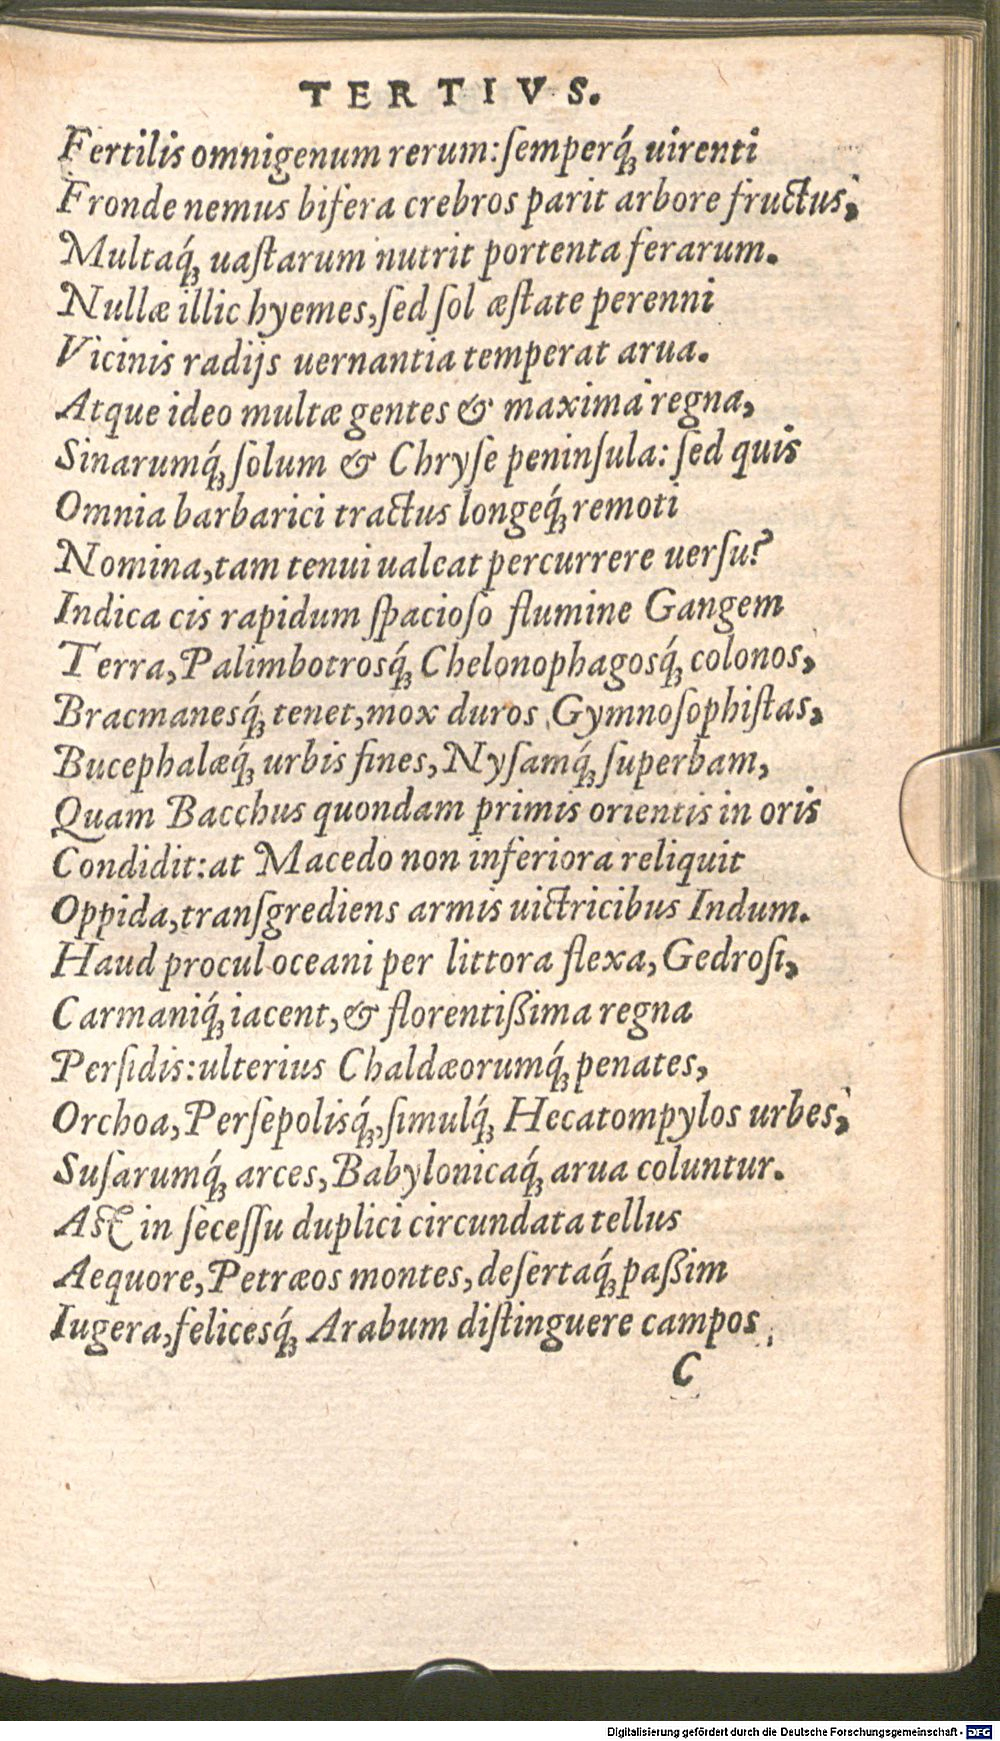 TERTIVS.
Fertilis omnigenum rerum: ſemperq́ꝫ uirenti
Fronde nemus bifera crebros parit arbore fructus,
Multaq́ꝫ uaſtarum nutrit portenta ferarum.
Nullæ illic hyemes, ſed ſol æſtate perenni
Vicinis radijs uernantia temperat arua.
Atque ideo multæ gentes & maxima regna,
Sinarumq́ꝫ ſolum & Chryſe peninſula: ſed quis
Omnia barbarici tractus longeq́ꝫ remoti
Nomina, tam tenui ualeat percurrere uerſu?
Indica cis rapidum ſpacioſo flumine Gangem
Terra, Palimbotrosq́ꝫ Chelonophagosq́ꝫ colonos,
Bracmanesq́ꝫ tenet, mox duros Gymnoſophiſtas,
Bucephalæq́ꝫ urbis fines, Nyſamq́ꝫ ſuperbam,
Quam Bacchus quondam primis orientis in oris
Condidit: at Macedo non inferiora reliquit
Oppida, tranſgrediens armis uictricibus Indum.
Haud procul oceani per littora flexa, Gedroſi,
Carmaniq́ꝫ iacent, & florentißima regna
Perſidis: ulterius Chaldæorumq́ꝫ penates,
Orchoa, Perſepolisq́ꝫ, ſimulq́ꝫ Hecatompylos urbes,
Suſarumq́ꝫ arces, Babylonicaq́ꝫ arua coluntur.
Aſt in ſeceſſu duplici circundata tellus
Aequore, Petræos montes, deſertaq́ꝫ paßim
Iugera, felicesq́ꝫ Arabum diſtinguere campos
C
Digitalisierung gefördert durch die Deutsche Forschungsgemeinschaft - DFG